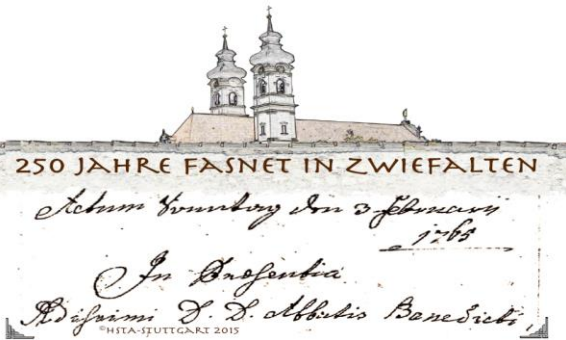 250 JAHRE FASNET IN ZWIEFALTEN
Actum Sonntag den 3 February
1765
In Praesentia
D. D. Abbatis Benedicti,
©HSTA-STUTTGART 2015